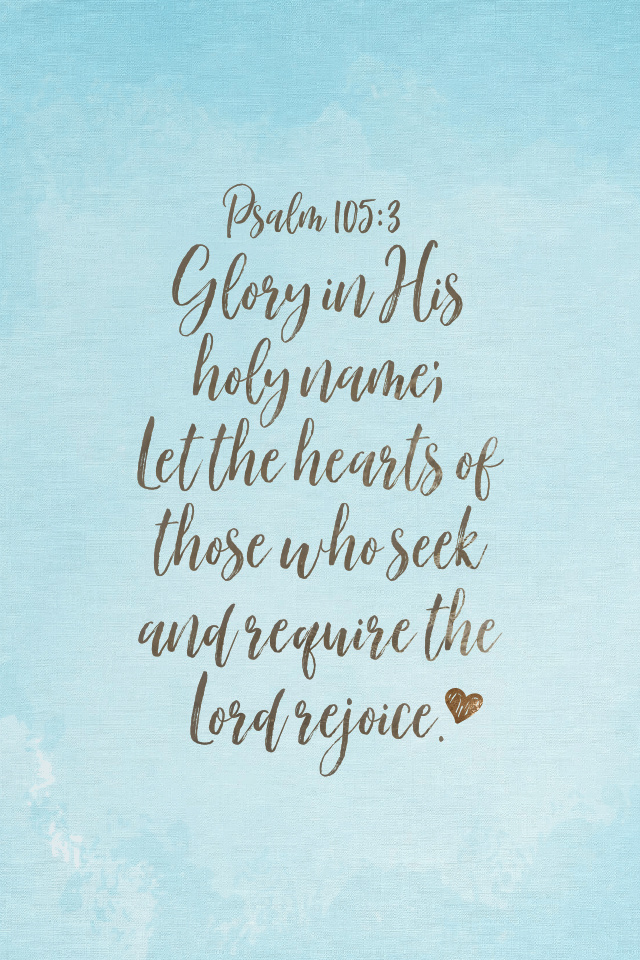 Psalm 105:3
Glory in His
holy name;
Let the hearts of
those who seek
and require the
Lord rejoice.